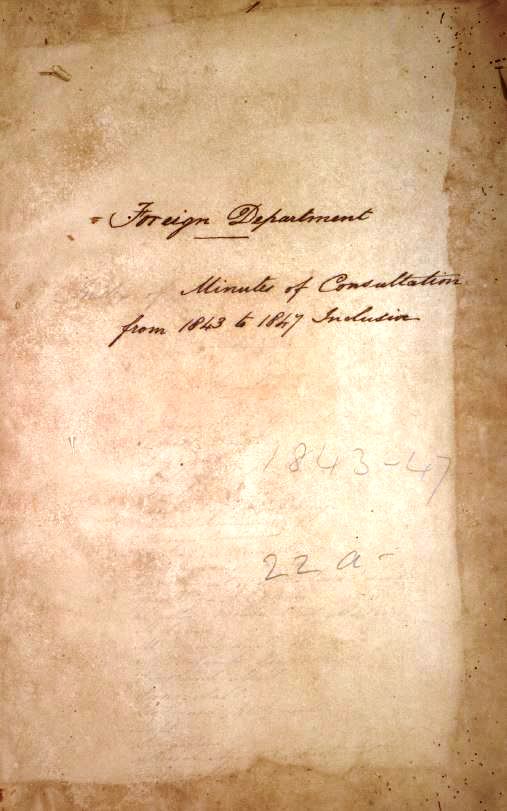 Foreign Department
Minutes of Consultation
from 1843 to 1847 Inclusive
1843-47
22 a-